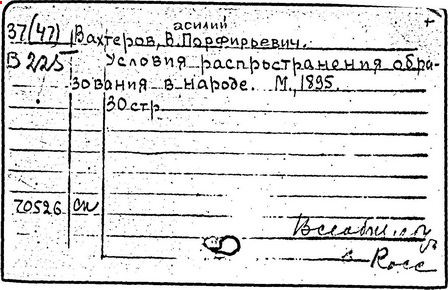 асилий
37(47) Вахтеров, В. Порфирьевич.
В 225 Условия распространения обра-
зования в народе. М., 1895.
30 стр.
70526 сп
в Росс